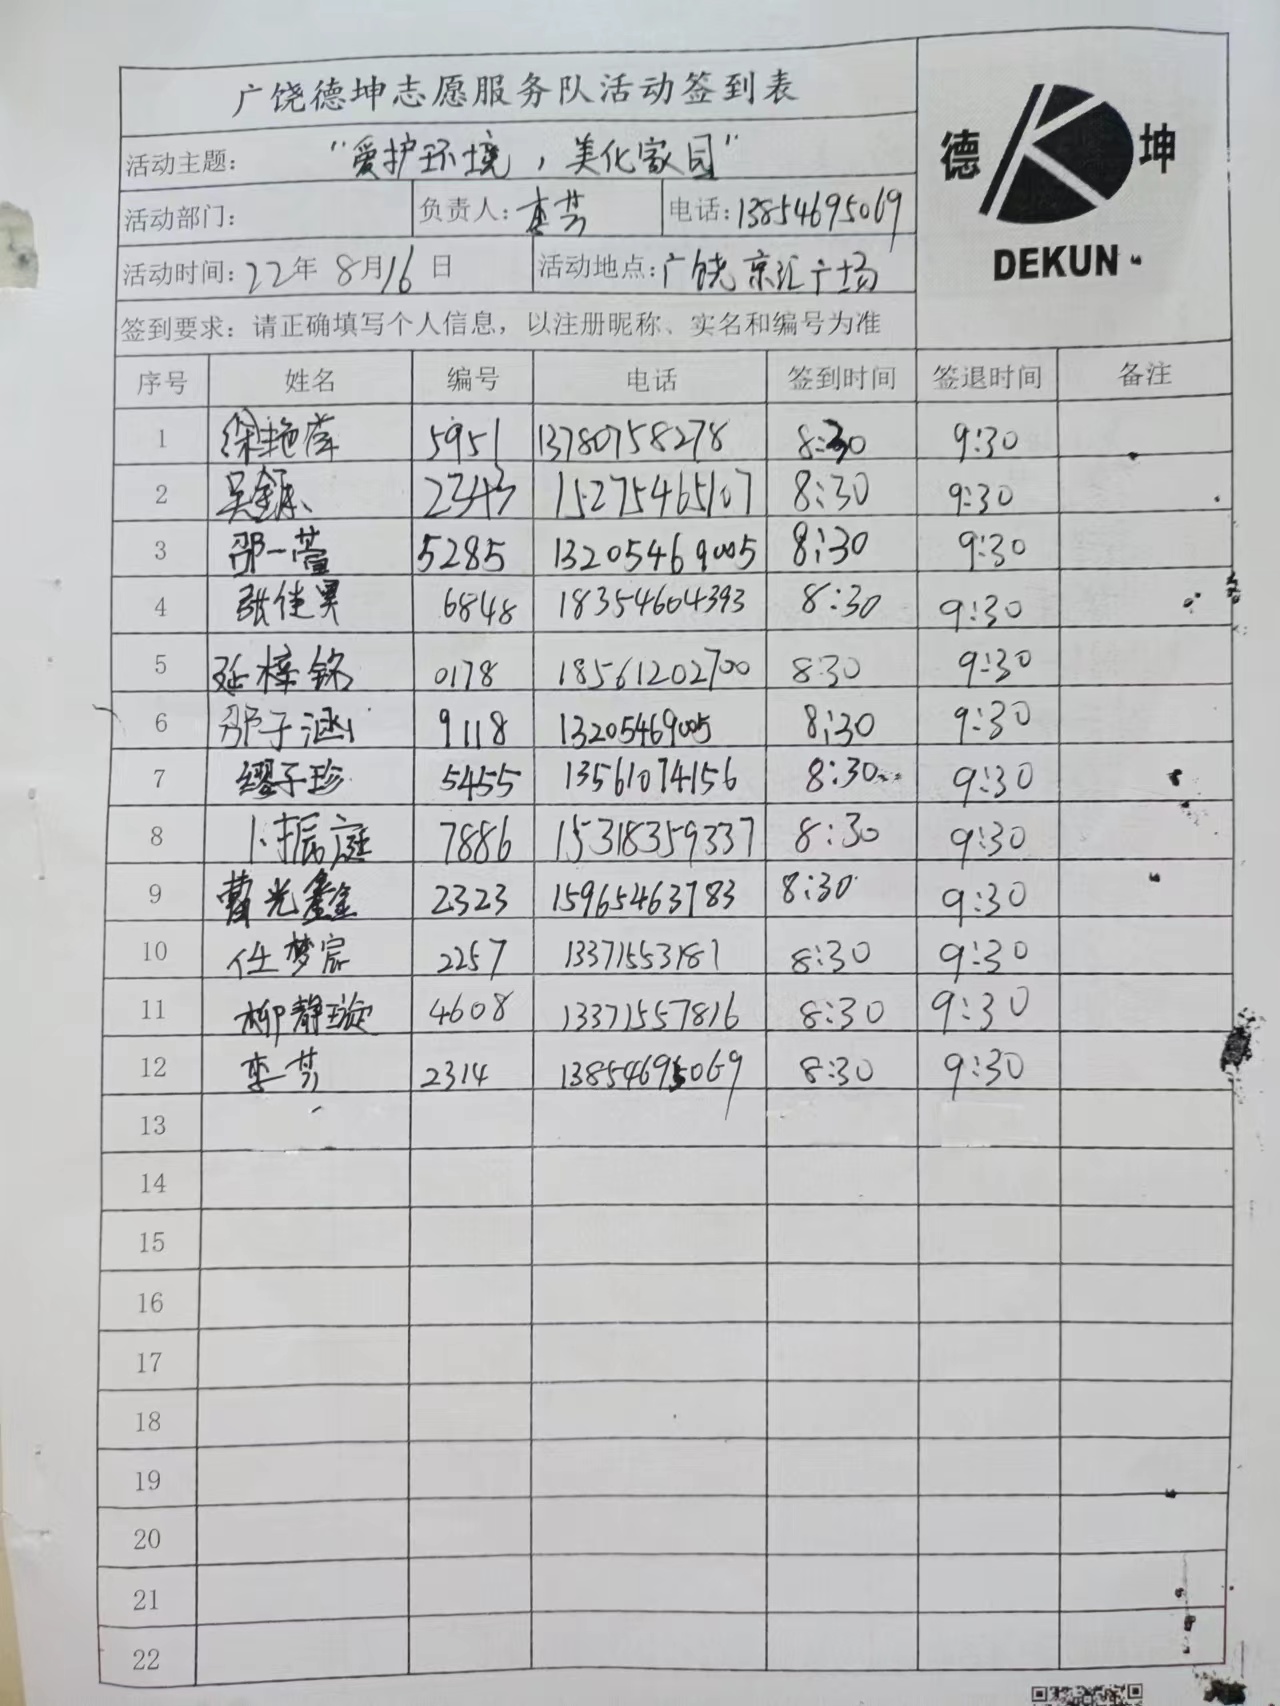 广饶德坤志愿服务队活动签到表
德 坤
DEKUN
活动主题: "爱护环境,美化家园"
活动部门: 负责人: 李芳 电话: 13854695069
活动时间: 22年 8月16日 活动地点: 广饶京汇广场
签到要求: 请正确填写个人信息, 以注册昵称、实名和编号为准
序号 姓名 编号 电话 签到时间 签退时间 备注
1 徐艳萍 5951 13780758278 8:30 9:30
2 2343 15275465107 8:30 9:30
3 邵一萱 5285 13205469005 8:30 9:30
4 张佳昊 6848 18354604393 8:30 9:30
5 延梓铭 0178 18561202700 8:30 9:30
6 邵子涵 9118 13205469005 8:30 9:30
7 缪子珍 5455 13561074156 8:30 9:30
8 振庭 7886 15318359337 8:30 9:30
9 曹光鑫 2323 15965463783 8:30 9:30
10 任梦宸 2257 13371553181 8:30 9:30
11 柳静璇 4608 13371557816 8:30 9:30
12 李芳 2314 13854695069 8:30 9:30
13
14
15
16
17
18
19
20
21
22